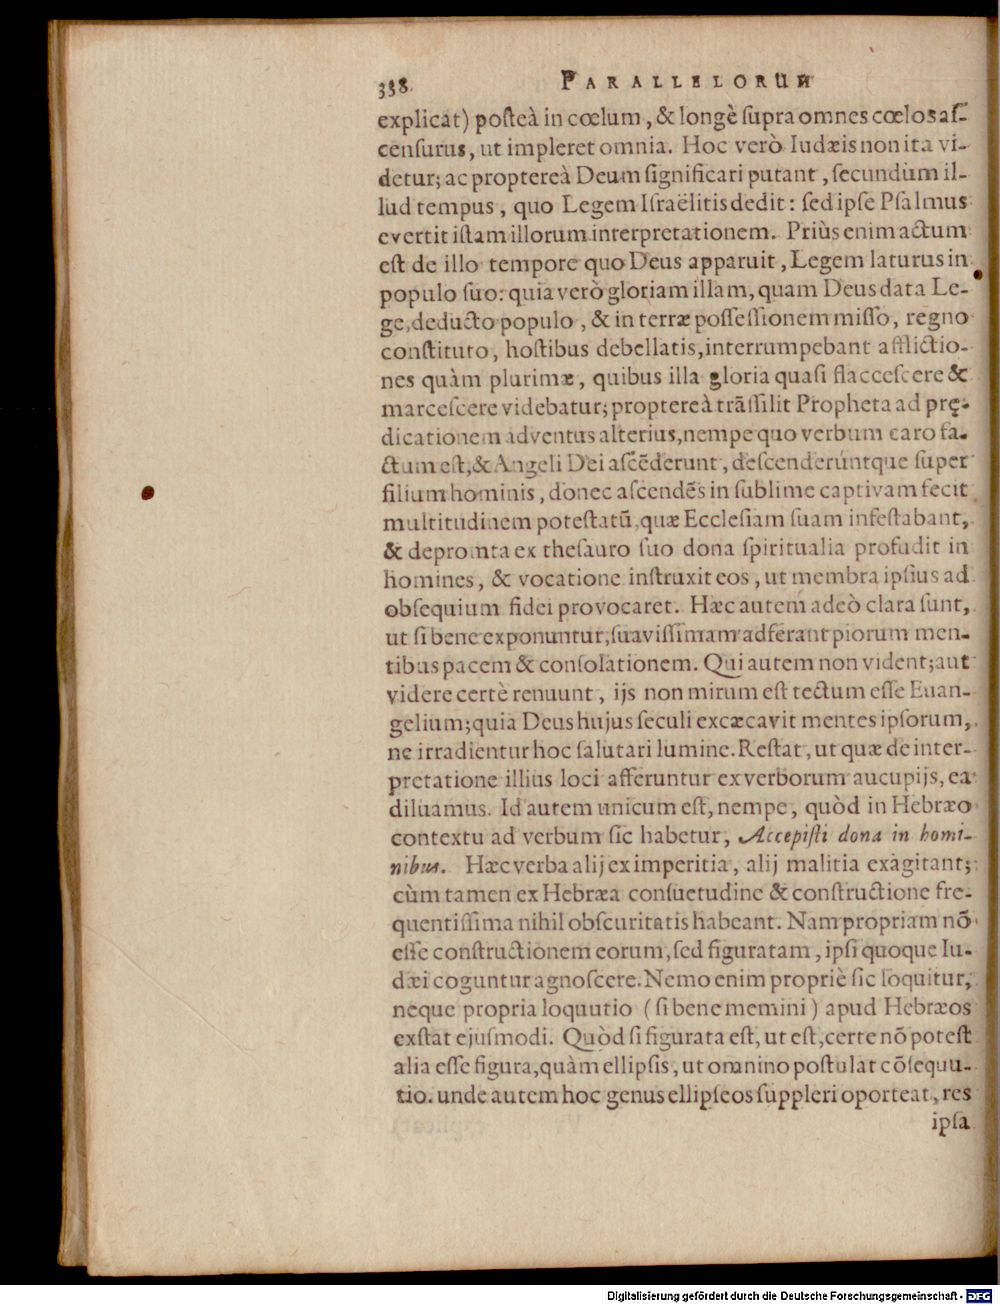 338 PARALLELORUM
explicat) posteà in cœlum, & longè ſupra omnes cœlos aſ-
cenſurus, ut impleret omnia. Hoc verò Iudæis non ita vi-
detur; ac proptereà Deum ſignificari putant, ſecundùm il-
lud tempus, quo Legem Iſraëlitis dedit: ſed ipſe Pſalmus
evertit iſtam illorum interpretationem. Priùs enim actum
eſt de illo tempore quo Deus apparuit, Legem laturus in
populo ſuo: quia verò gloriam illam, quam Deus data Le-
ge, deducto populo, & in terræ poſſeſſionem miſſo, regno
conſtituto, hoſtibus debellatis, interrumpebant afflictio-
nes quàm plurimæ, quibus illa gloria quaſi flacceſcere &
marceſcere videbatur; proptereà trāſſilit Propheta ad prę-
dicationem adventus alterius, nempe quo verbum caro fa-
ctum eſt, & Angeli Dei aſcēderunt, deſcenderúntque ſuper
filium hominis, donec aſcendēs in ſublime captivam fecit
multitudinem poteſtatū, quæ Eccleſiam ſuam infeſtabant,
& depromta ex theſauro ſuo dona ſpiritualia profudit in
homines, & vocatione inſtruxit eos, ut membra ipſius ad
obſequium fidei provocaret. Hæc autem adeò clara ſunt,
ut ſi bene exponuntur, ſuaviſſimam adferant piorum men-
tibus pacem & conſolationem. Qui autem non vident; aut
videre certè renuunt, ijs non mirum eſt tectum eſſe Euan-
gelium; quia Deus hujus ſeculi excæcavit mentes ipſorum,
ne irradientur hoc ſalutari lumine. Reſtat, ut quæ de inter-
pretatione illius loci afferuntur ex verborum aucupijs, ea
diluamus. Id autem unicum eſt, nempe, quòd in Hebræo
contextu ad verbum ſic habetur, Accepiſti dona in homi-
nibus. Hæc verba alij ex imperitia, alij malitia exagitant;
cùm tamen ex Hebræa conſuetudine & conſtructione fre-
quentiſſima nihil obſcuritatis habeant. Nam propriam nō
eſſe conſtructionem eorum, ſed figuratam, ipſi quoque Iu-
dæi coguntur agnoſcere. Nemo enim propriè ſic loquitur,
neque propria loquutio (ſi bene memini) apud Hebræos
exſtat ejuſmodi. Quòd ſi figurata eſt, ut eſt, certe nō poteſt
alia eſſe figura, quàm ellipſis, ut omnino poſtulat cōſequu-
tio. unde autem hoc genus ellipſeos ſuppleri oporteat, res
ipſa
Digitalisierung gefördert durch die Deutsche Forschungsgemeinschaft - DFG